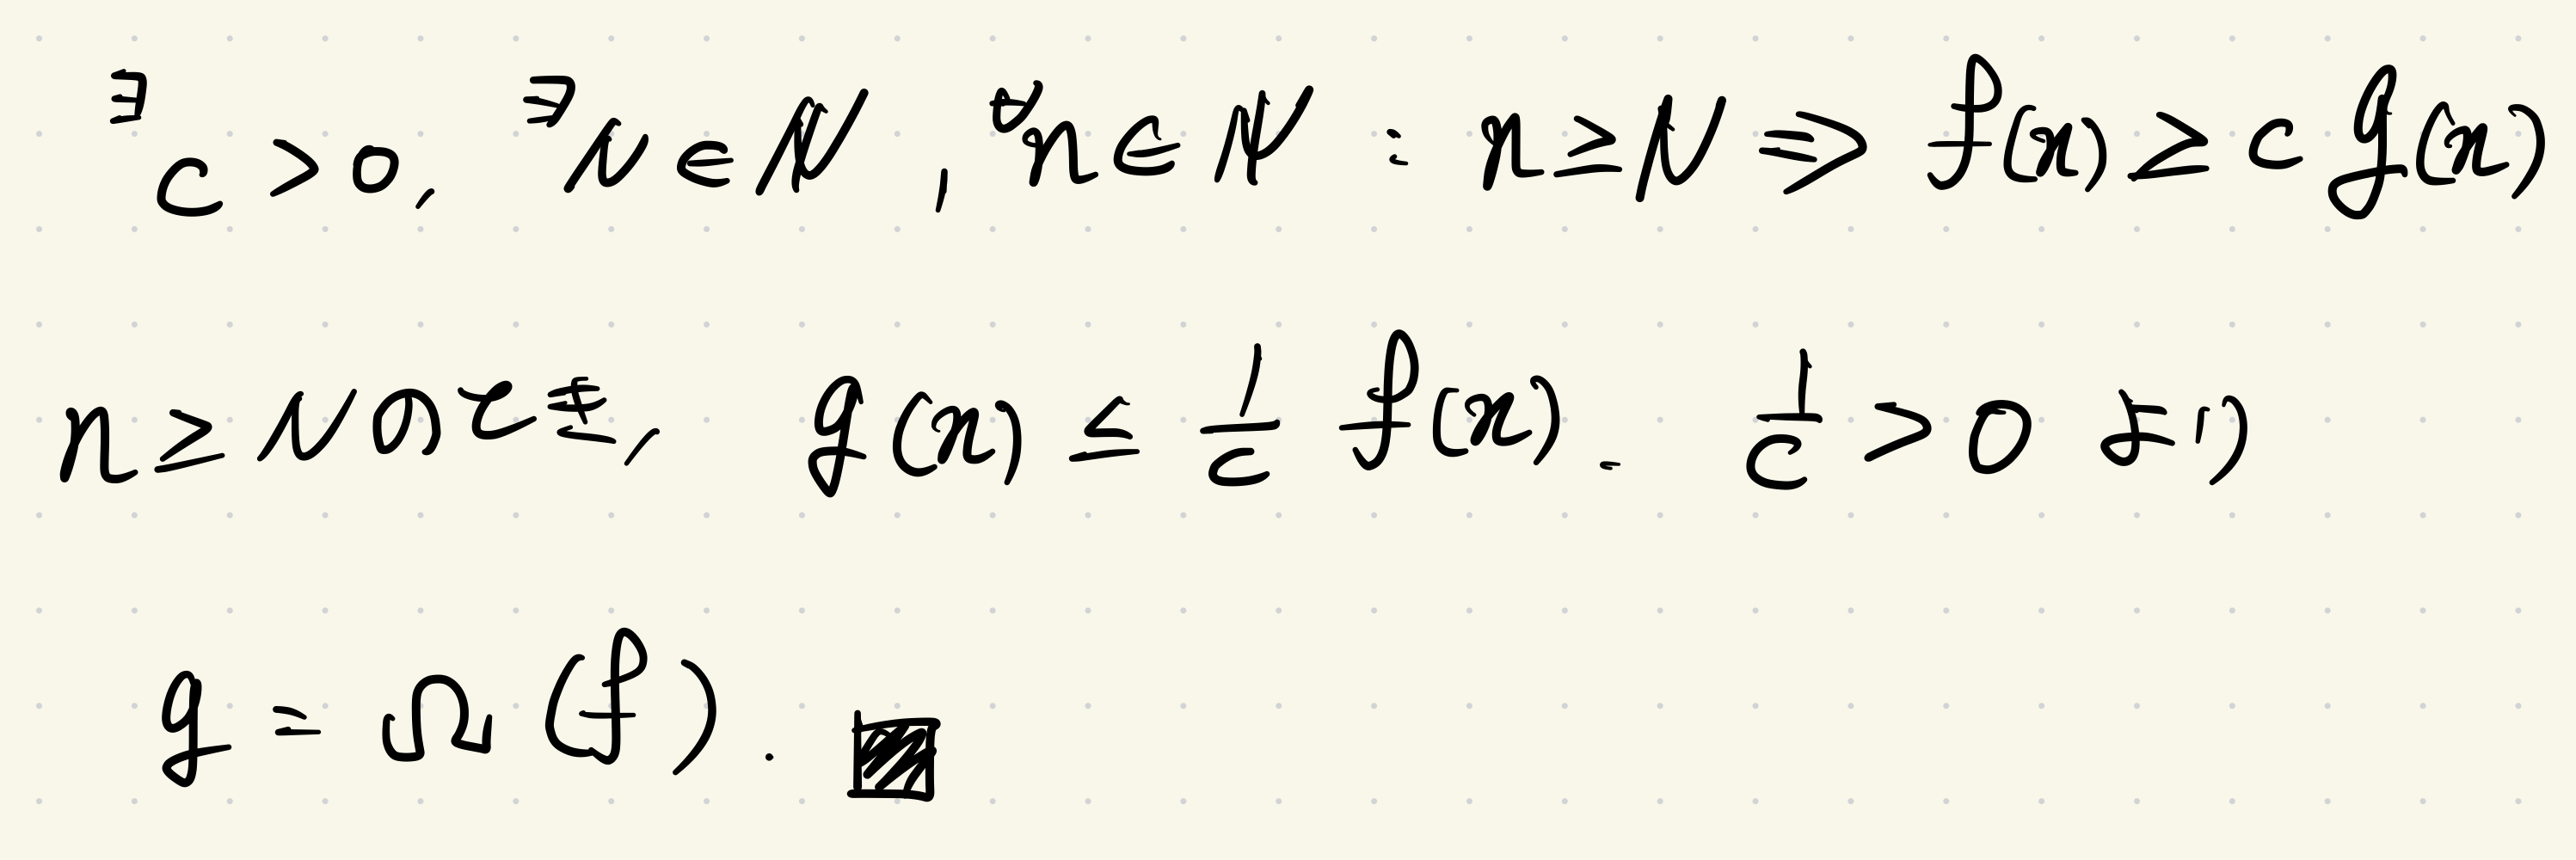 ∃c > 0, ∃N ∈ ℕ, ∀n ∈ ℕ : n ≥ N ⇒ f(n) ≥ c g(n)
n ≥ N のとき, g(n) ≤ 1/c f(n). 1/c > 0 より
g = Ω(f). ■